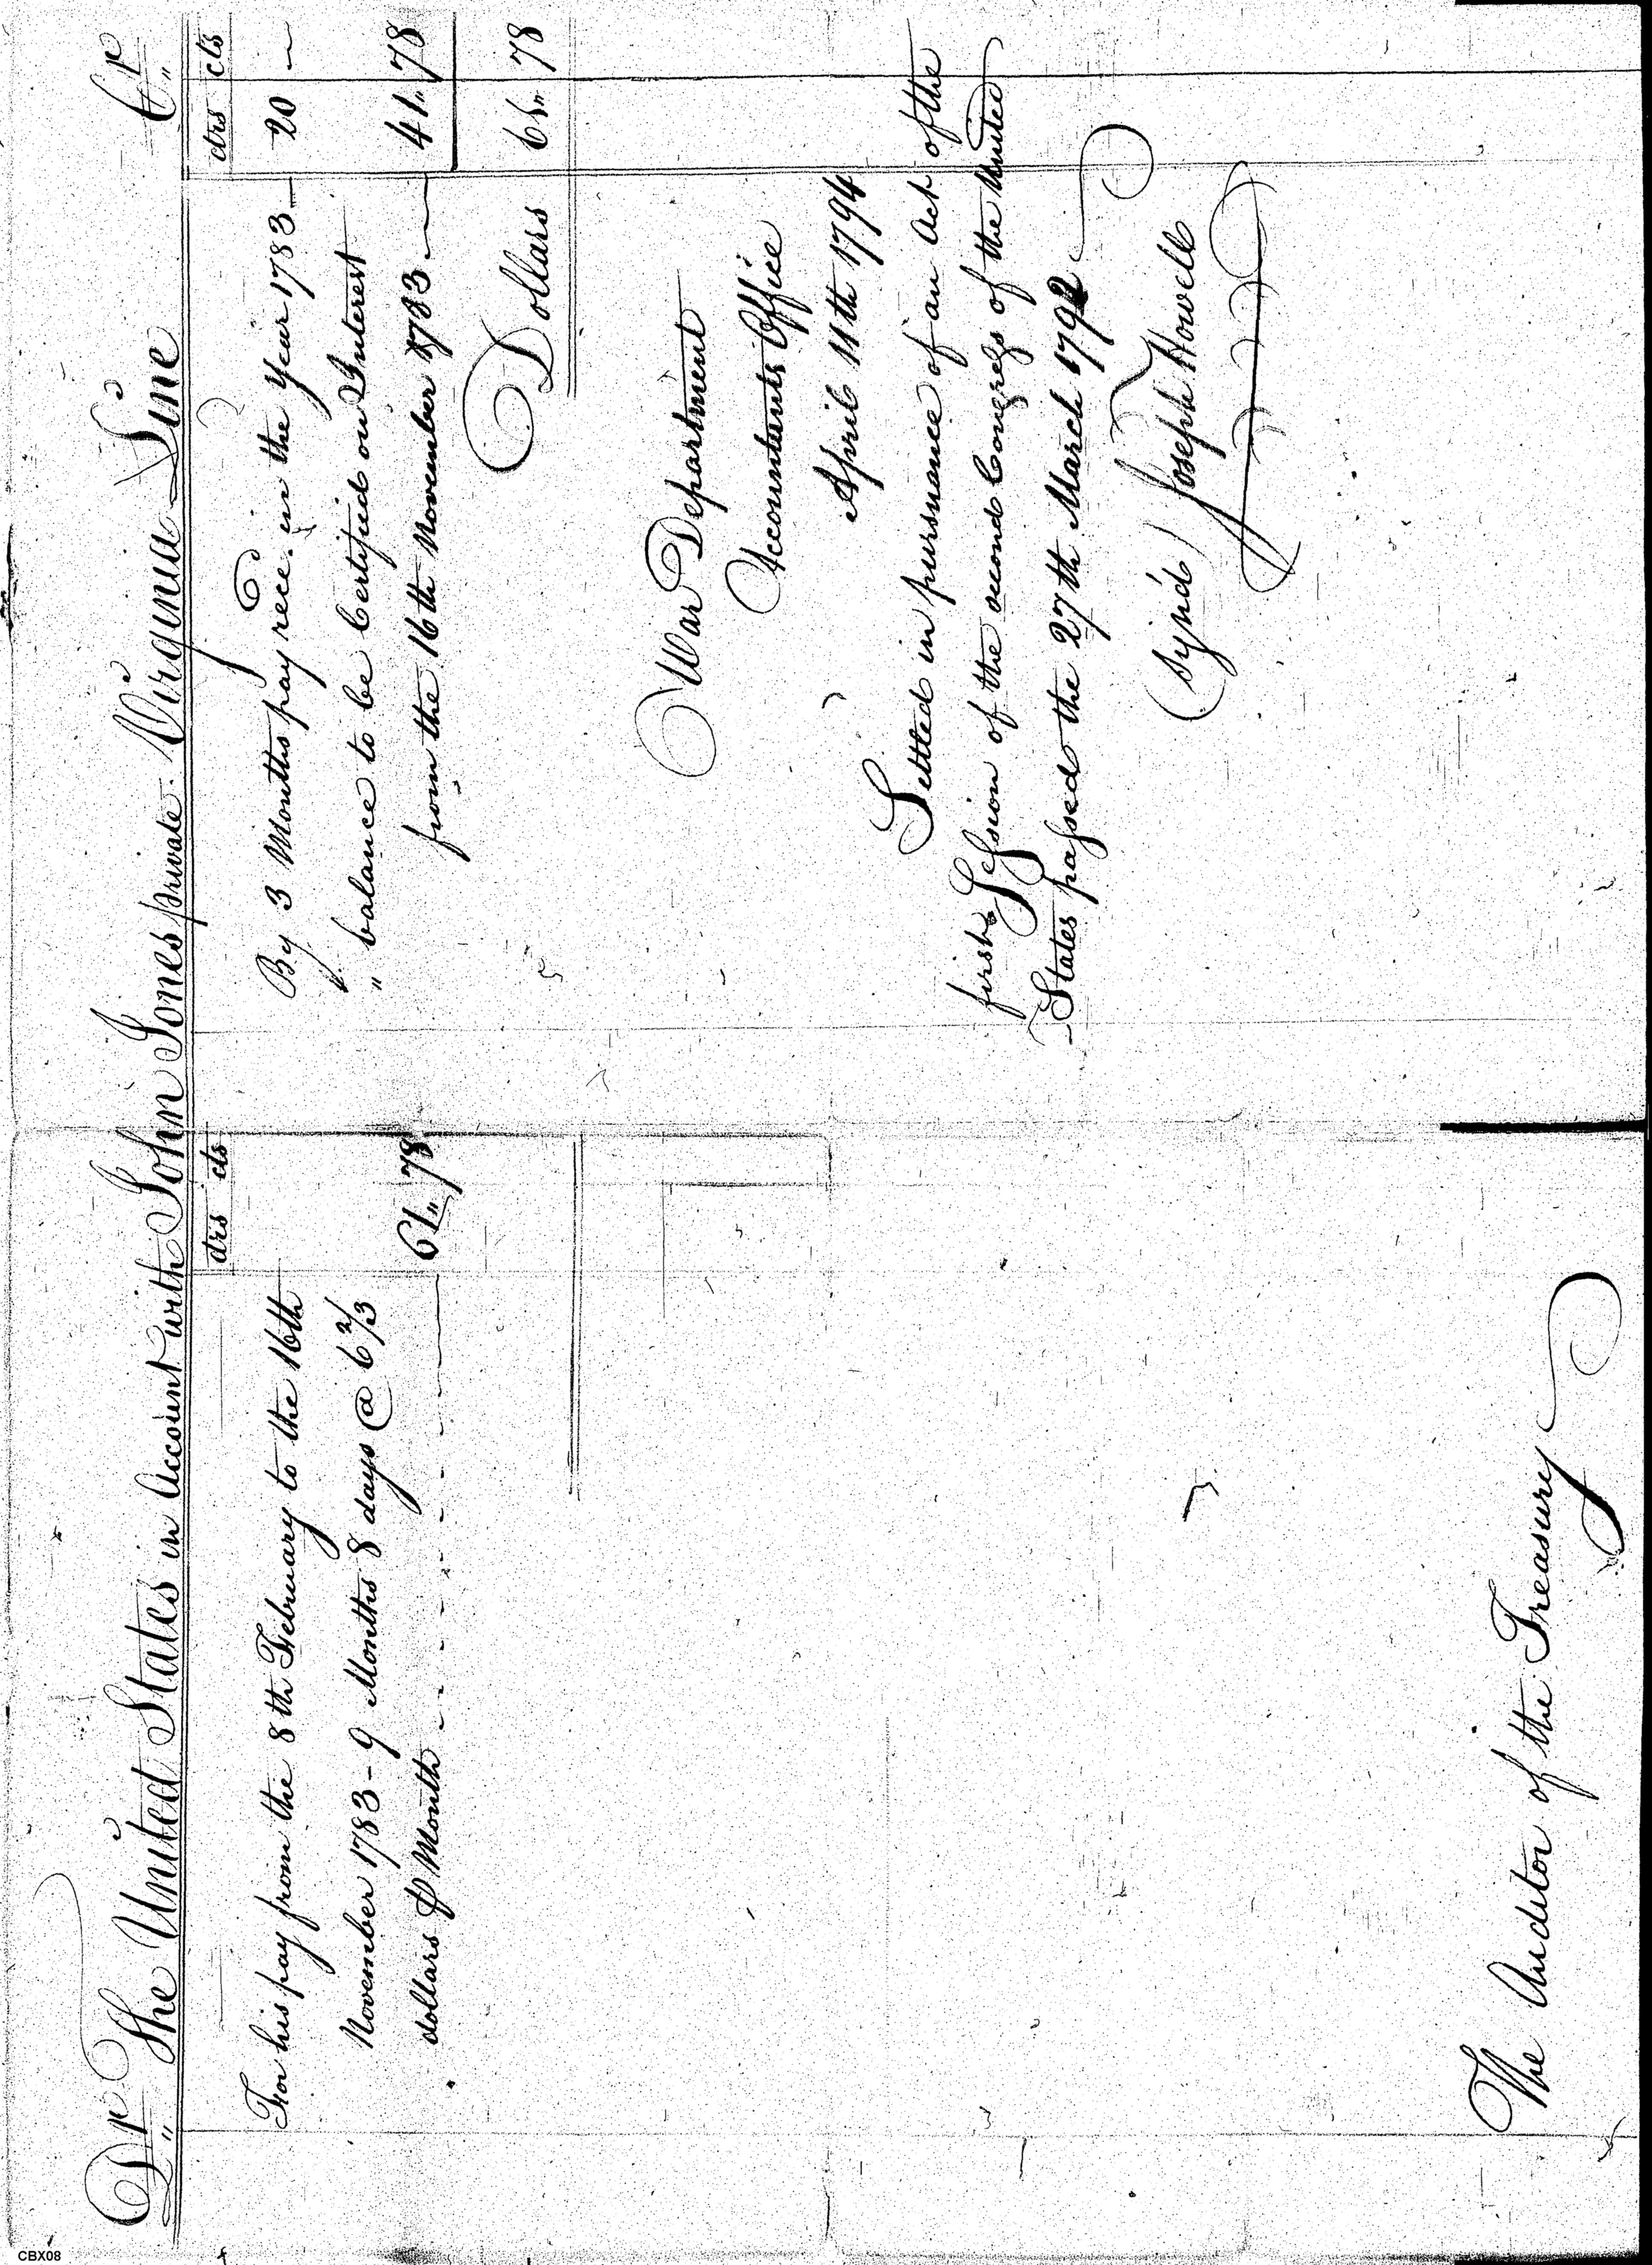 Dr The United States in Account with John Jones private Virginia Line Cr
drs cts
For his pay from the 8th February to the 16th
November 1783 - 9 Months 8 days @ 6 2/3
dollars ⅌ Month 61„ 78
drs cts
By 3 Months pay rece. in the year 1783 20 —
„ balance to be Certified on Interest
from the 16th November 1783 41„ 78
Dollars 61„ 78
War Department
Accountants Office
April 11th 1794
Settled in pursuance of an Act of the
first Session of the second Congress of the United
States passed the 27th March 1792
(sign'd) Joseph Howell
The Auditor of the Treasury
CBX08